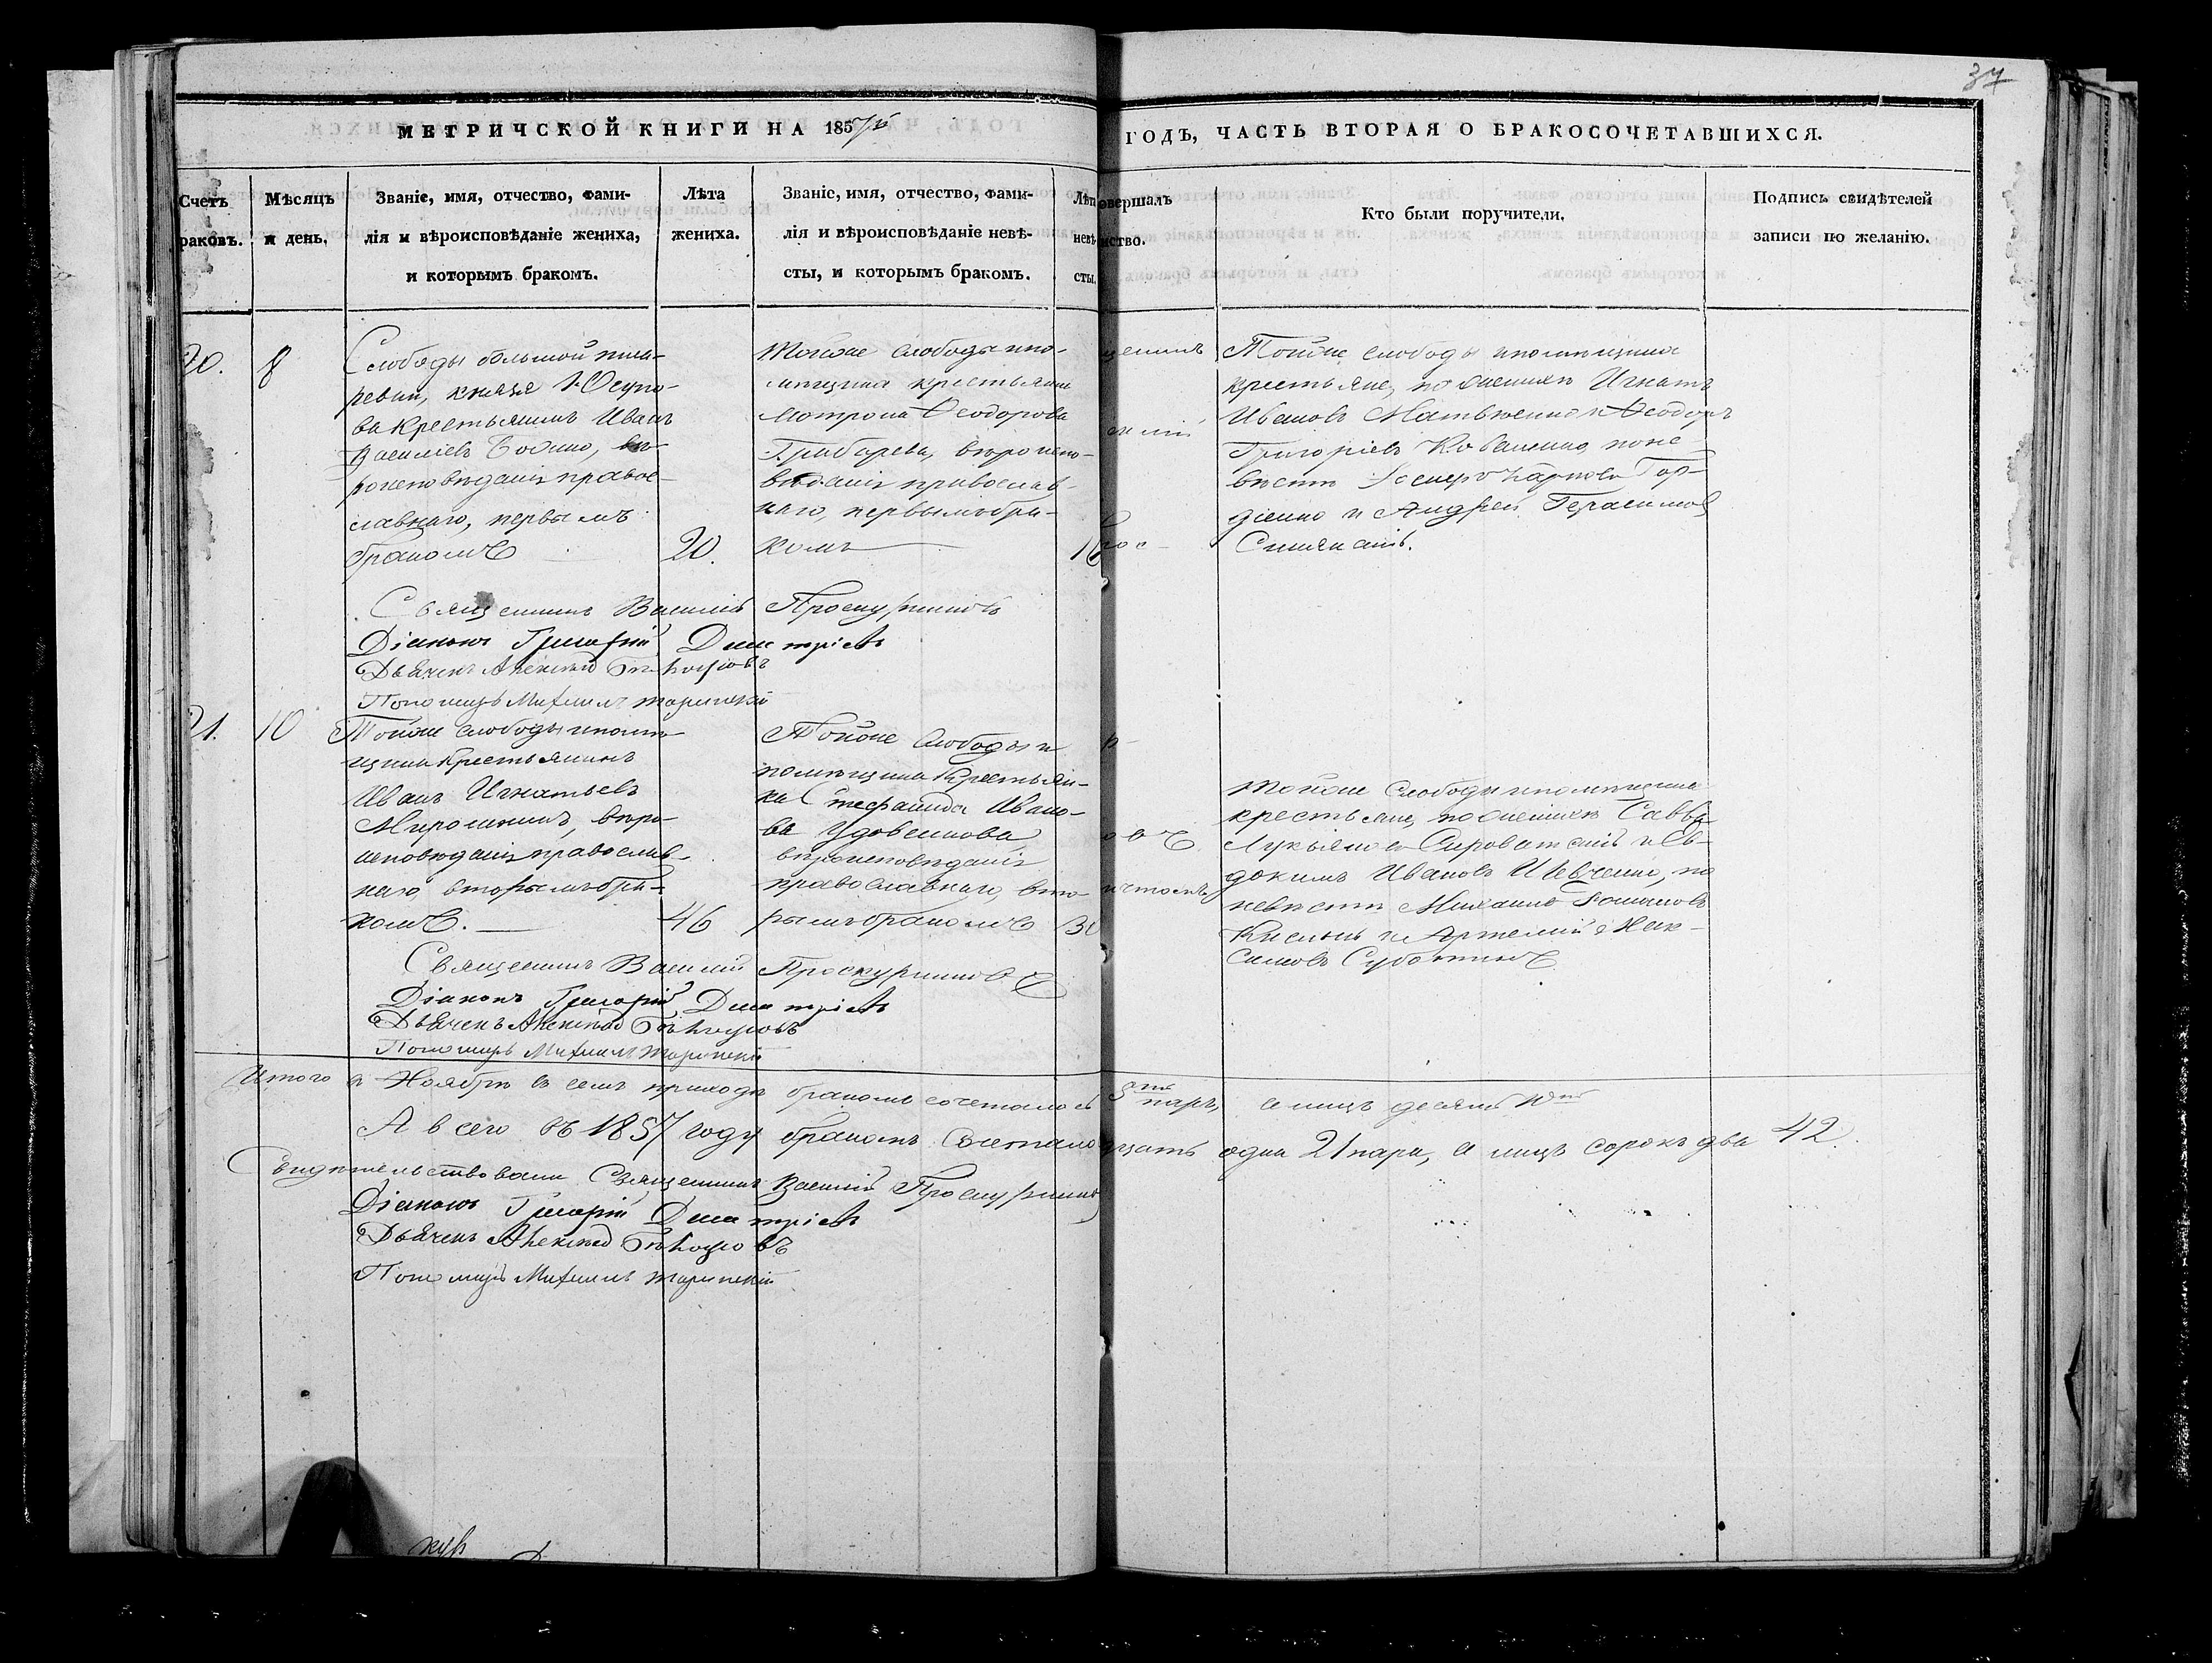 37
МЕТРИЧСКОЙ КНИГИ НА 1857й
ГОДЪ, ЧАСТЬ ВТОРАЯ О БРАКОСОЧЕТАВШИХСЯ.
Счетъ
раковъ.
Мѣсяцъ
и день.
Званіе, имя, отчество, фами-
лія и вѣроисповѣданіе жениха,
и которымъ бракомъ.
Лѣта
жениха.
Званіе, имя, отчество, фами-
лія и вѣроисповѣданіе невѣ-
сты, и которымъ бракомъ.
Лѣт
невѣ-
сты.
овершалъ
нство.
Кто были поручители.
Подпись свидѣтелей
записи по желанію.
20.
8
Слободы большой писа-
ревки, князя Юсупо-
ва крестьянинъ Иванъ
Василіевъ вѣ-
роисповѣданія правос-
лавнаго, первымъ
бракомъ
20.
Тойже слободы и по-
мѣщика крестьянка
Мотрона Ѳеодорова
Грибарева, вѣроиспо-
вѣданія православ-
наго, первымъ бра-
комъ
Тойже слободы и помѣщика
крестьяне, по женихѣ Игнатъ
Ивановъ Матвѣенко и Ѳеодоръ
Григоріевъ Коваленко, по не-
вѣстѣ Гор-
діенко и Андрей Герасимовъ
Священникъ Василій Проскурниковъ
Діаконъ Григорій Дмитріевъ
Дьячекъ Алексѣй Бѣлоусовъ
Пономарь Михаилъ
21.
10
Тойже слободы и помѣ-
щика крестьянинъ
Иванъ Игнатьевъ
Мирошникъ, вѣро-
исповѣданія православ-
наго, вторымъ бра-
комъ.
46
Тойже слободы и
помѣщика крестьян-
ка Стефанида Ивано-
ва Удовенкова
вѣроисповѣданія
православнаго, вто-
рымъ бракомъ
30
Тойже слободы и помѣщика
крестьяне, по женихѣ Савва
Лукьяновъ Сыроватскій и Ев-
докимъ Ивановъ Шевченко, по
невѣстѣ Михаилъ
и Артемій Мак-
симовъ Суботинъ
Священникъ Василій Проскурниковъ
Діаконъ Григорій Дмитріевъ
Дьячекъ Алексѣй Бѣлоусовъ
Пономарь Михаилъ
Итого въ Ноябрѣ въ семъ приходѣ бракомъ сочеталось 5ть паръ, а лицъ десять 10ть
А всего въ 1857 году бракомъ сочетало цать одна 21 пара, а лицъ сорокъ два 42.
Свидѣтельствовали Священникъ Василій Проскурник
Діаконъ Григорій Дмитріевъ
Дьячекъ Алексѣй Бѣлоусовъ
Пономарь Михаилъ